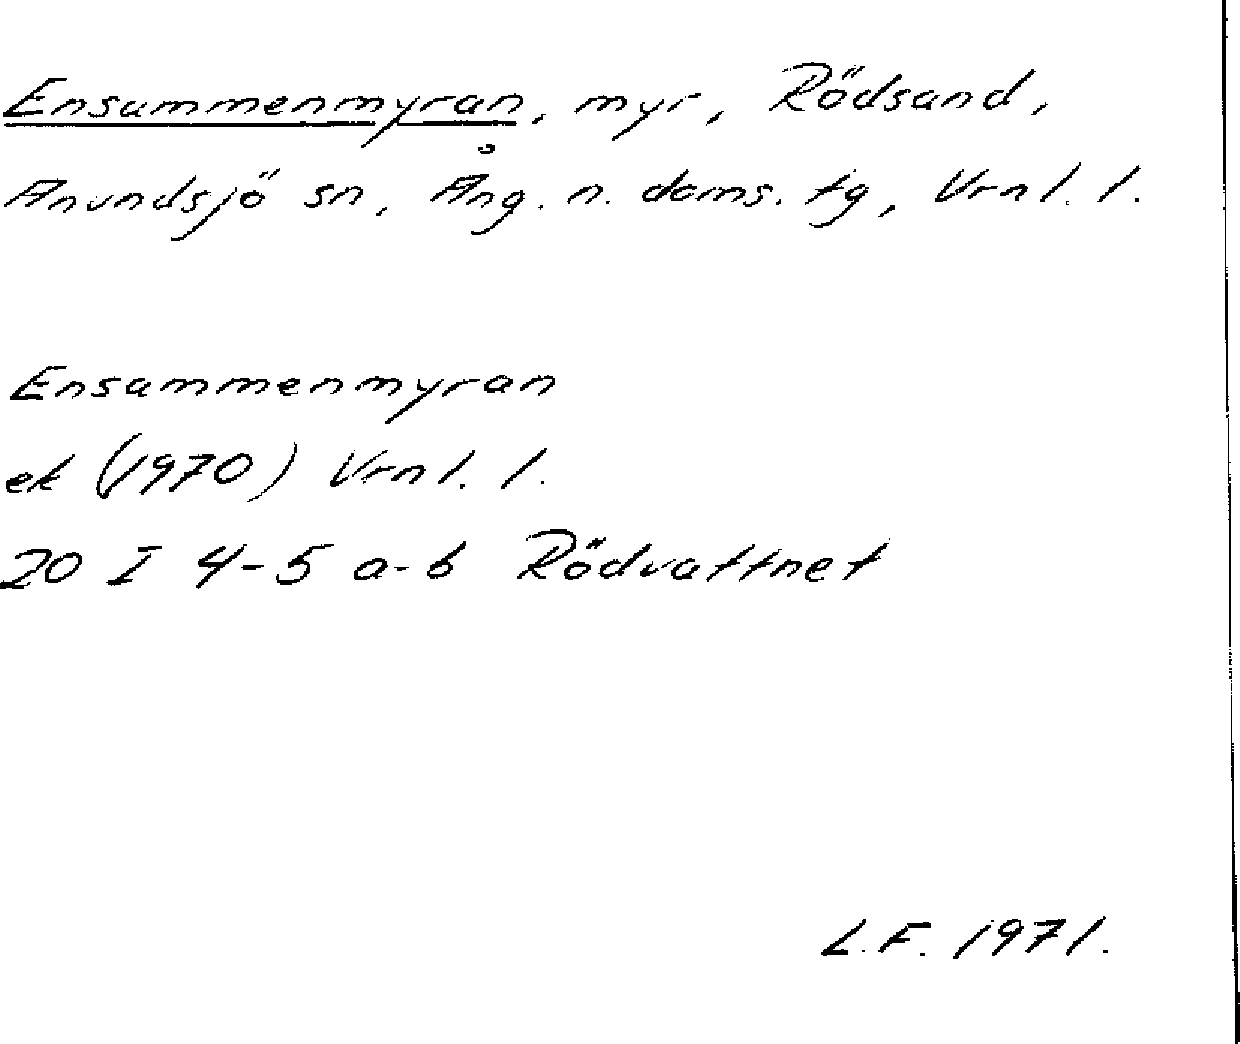 Ensammenmyran, myr, Rödsand,
Anundsjö sn, Ång. n. doms. tg, Vrnl. l.
Ensammenmyran
ek (1970) Vrnl. l.
20 I 4-5 a-b Rödvattnet
L.F. 1971.